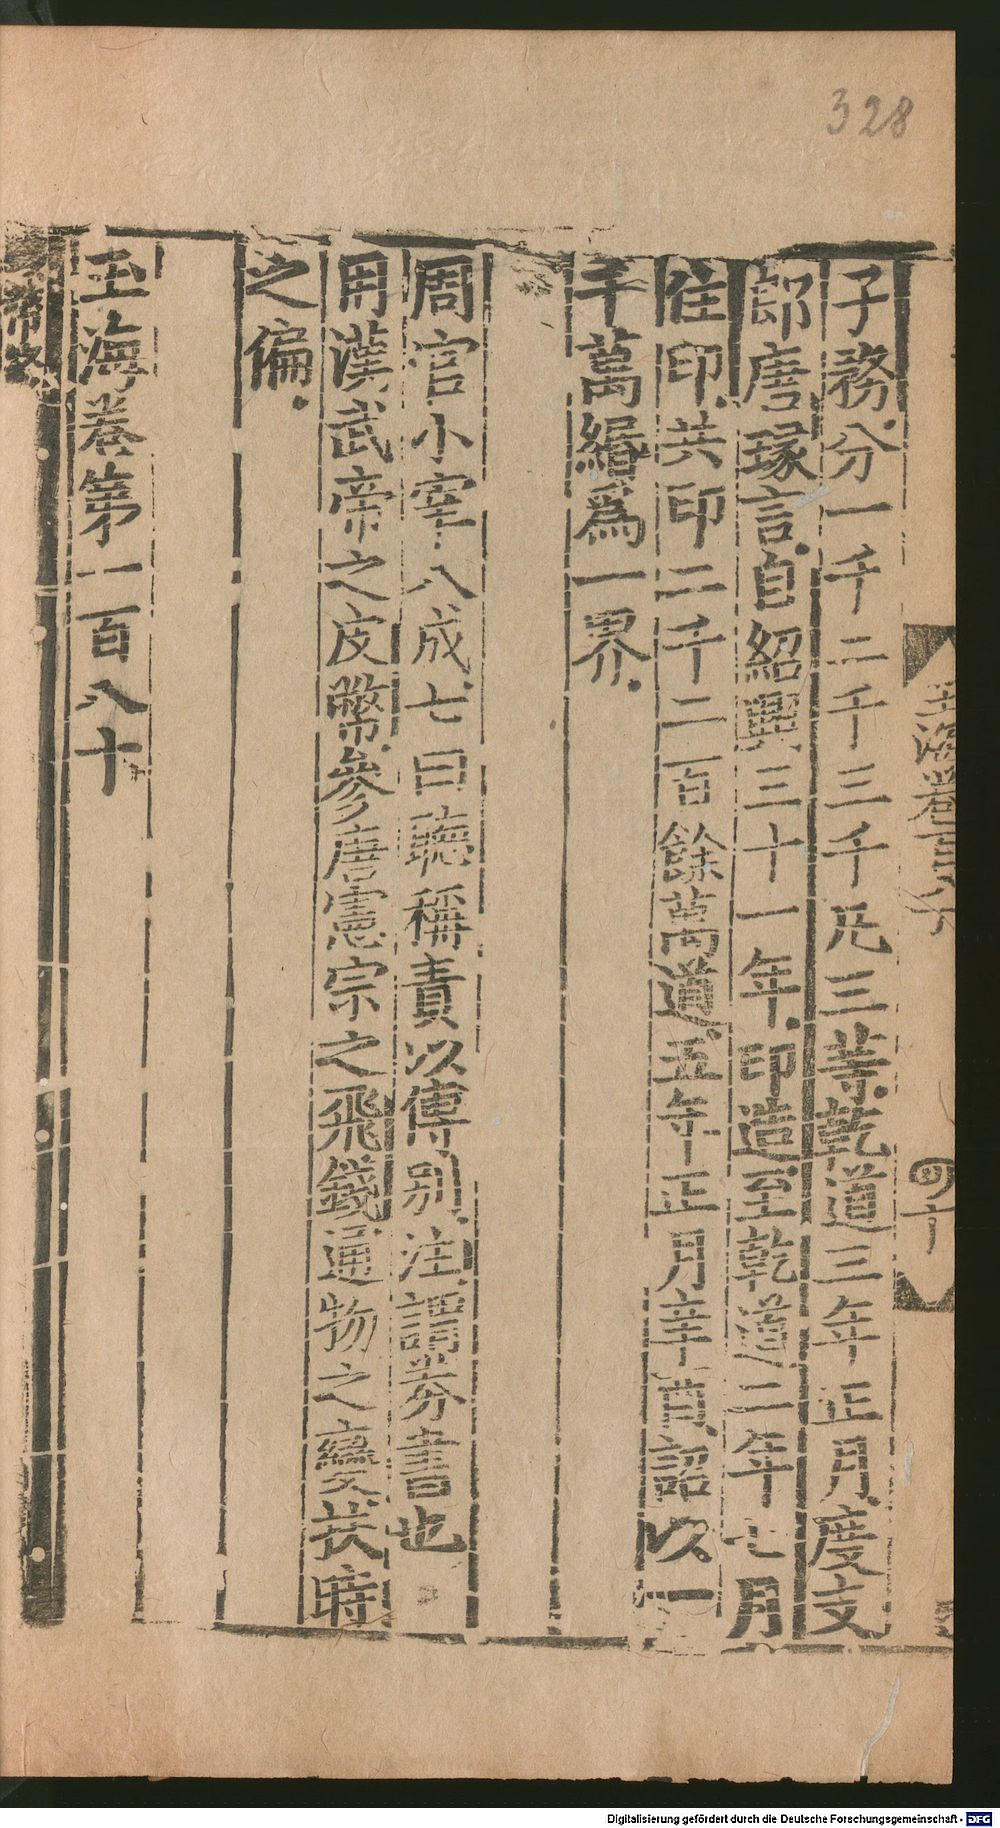 328
子務分一千二千三千凡三等乾道三年正月度支
郎唐瑑言自紹興三十一年印造至乾道二年七月
住印共印二千二百餘萬道五年正月辛酉詔以一
千萬緡爲一界
周官小宰八成七曰聽稱責以傅别注謂券書也
用漢武帝之皮幣參唐憲宗之飛錢通物之變扶時
之偏
玉海卷第一百八十
玉海卷百八十
四十
Digitalisierung gefördert durch die Deutsche Forschungsgemeinschaft - DFG